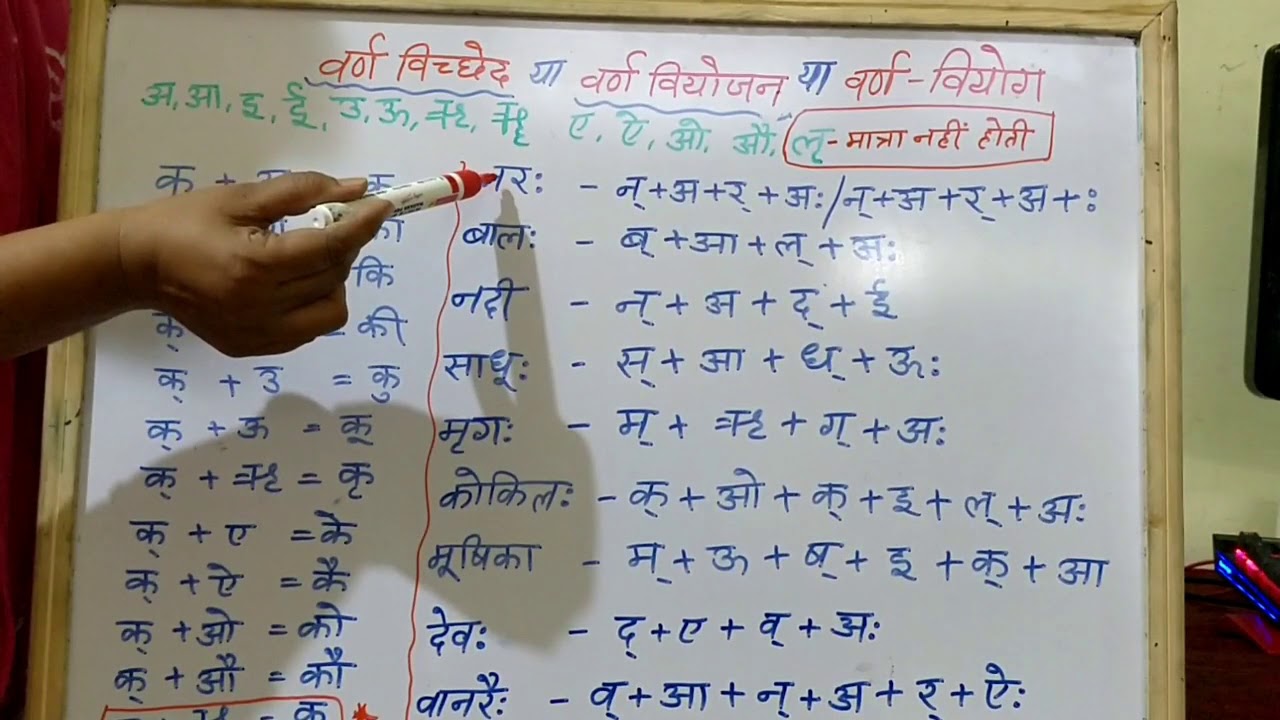 वर्ण विच्छेद या वर्ण वियोजन या वर्ण - वियोग
अ, आ, इ, ई, उ, ऊ, ऋ, ॠ ए, ऐ, ओ, औ, लृ - मात्रा नहीं होती
क् +
कि
= की
क् + उ = कु
क् + ऊ = कू
क् + ऋ = कृ
क् + ए = के
क् + ऐ = कै
क् + ओ = को
क् + औ = कौ
रः - न् + अ + र् + अः / न् + अ + र् + अ + ः
बालः - ब् + आ + ल् + अः
नदी - न् + अ + द् + ई
साधूः - स् + आ + ध् + ऊः
मृगः - म् + ऋ + ग् + अः
कोकिलः - क् + ओ + क् + इ + ल् + अः
मूषिका - म् + ऊ + ष् + इ + क् + आ
देवः - द् + ए + व् + अः
वानरैः - व् + आ + न् + अ + र् + ऐः